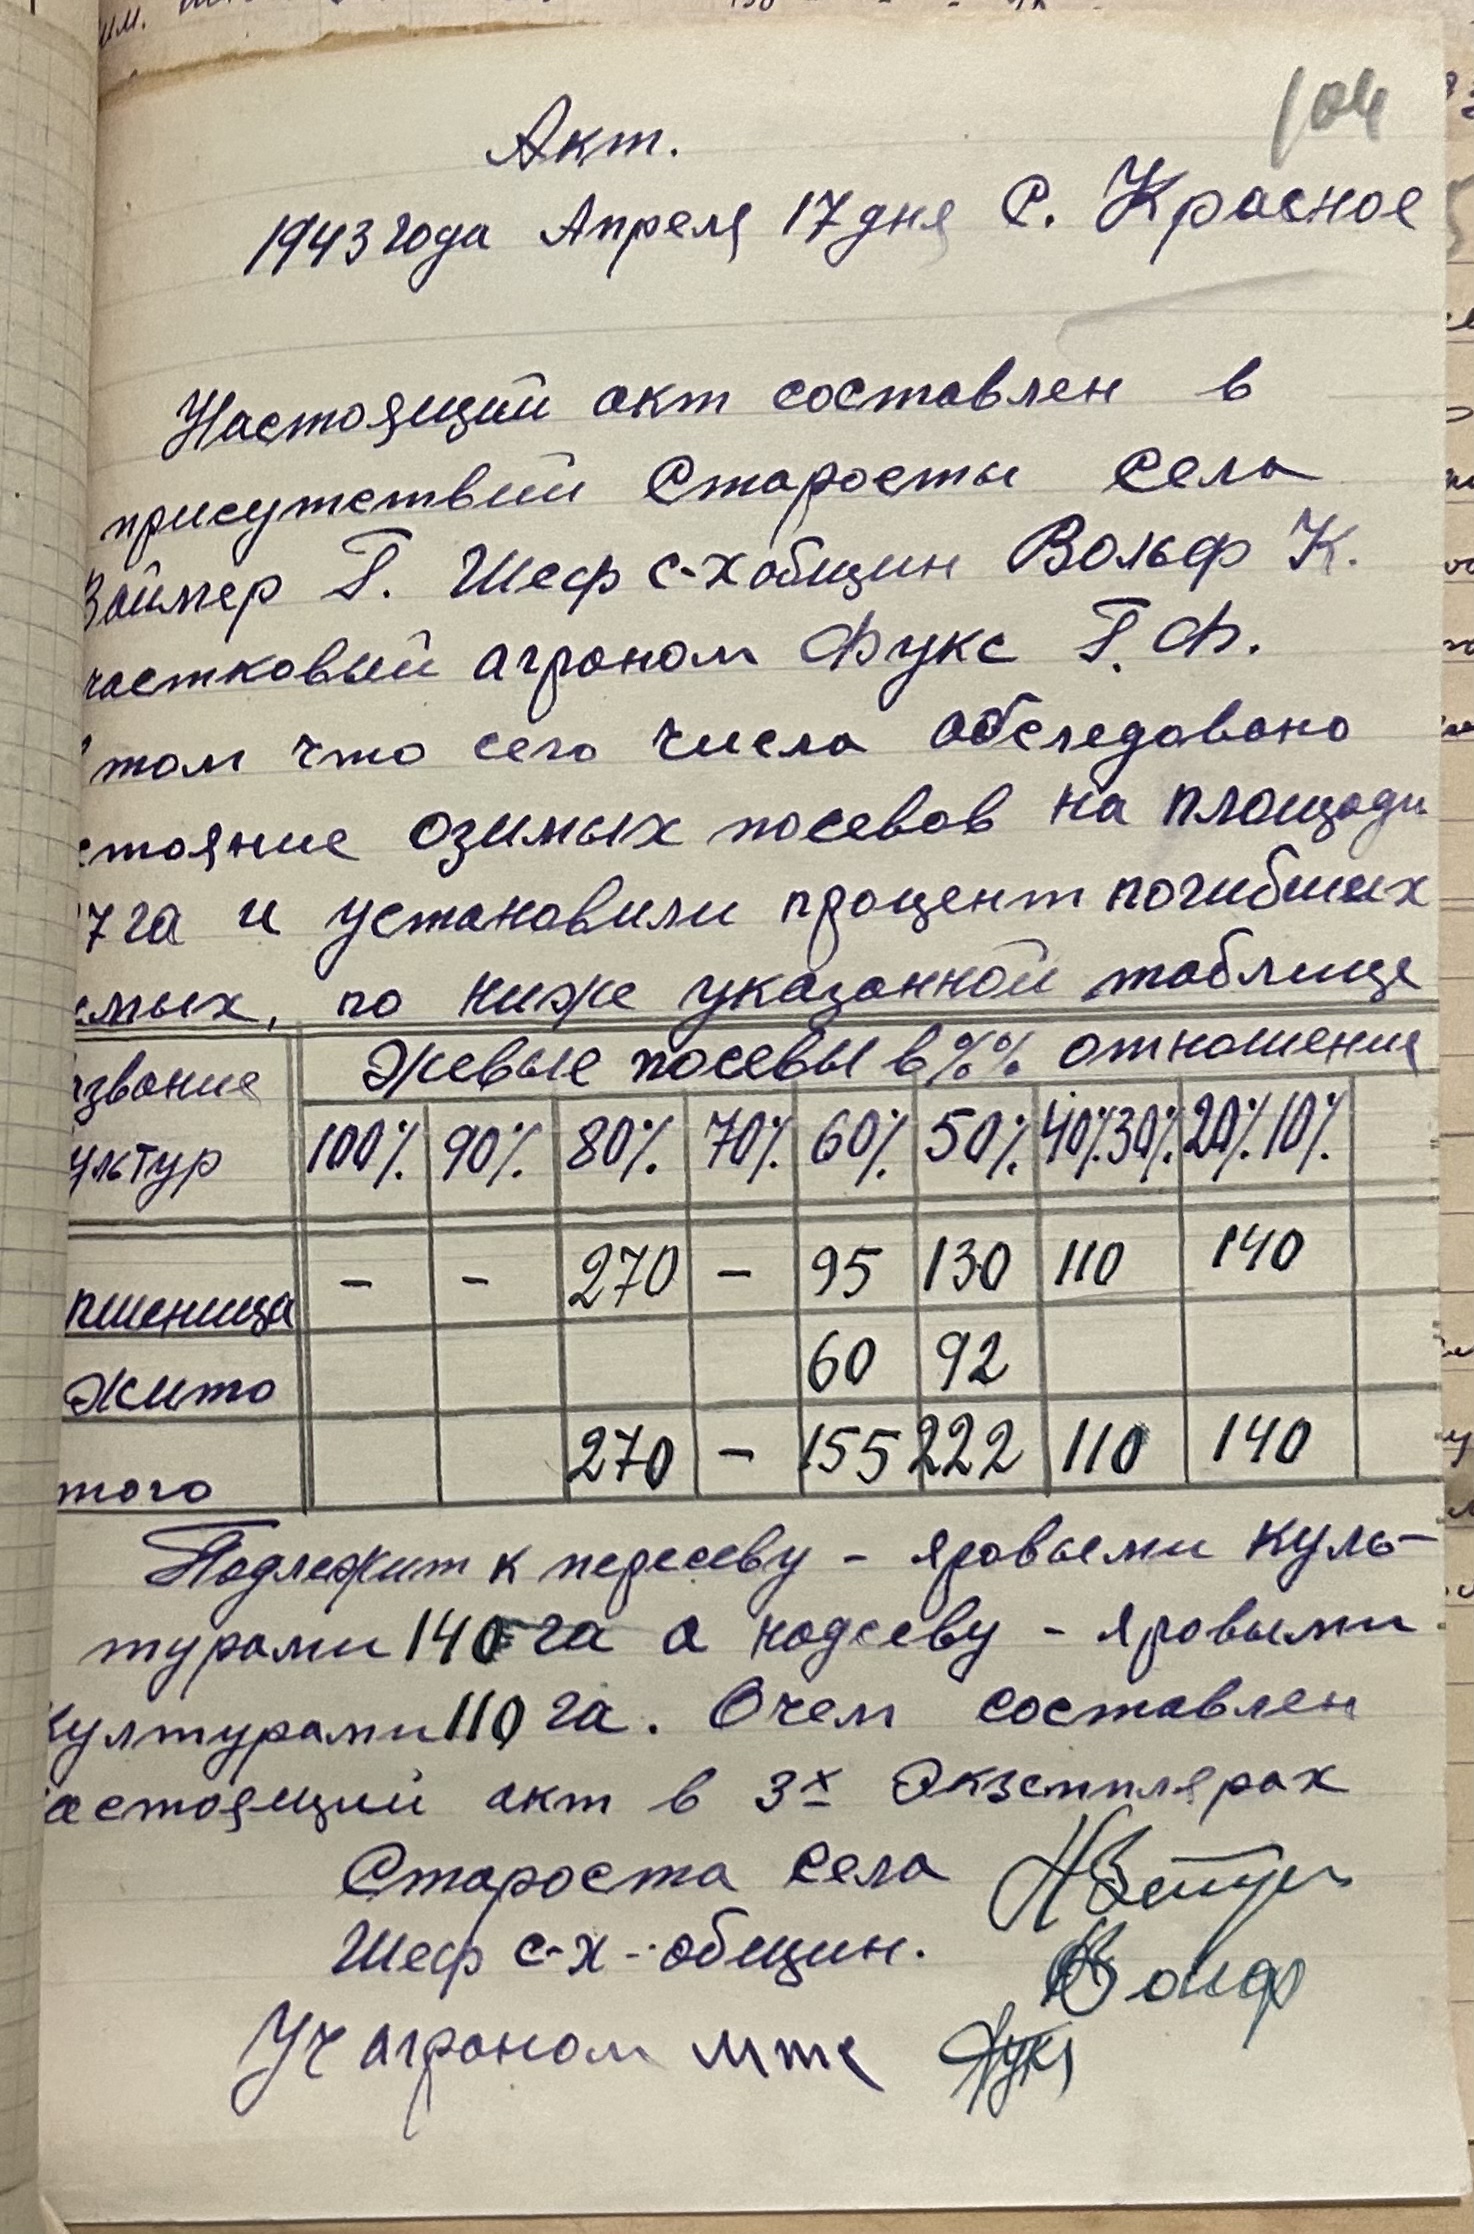 104
Акт.
1943 года Апреля 17 дня С. Красное
Настоящий акт составлен в
присутствий Старосты села
Г. Шеф с-х общин Вольф К.
частковый агроном Фукс Г. Ф.
том что сего числа обследовано
стояние озимых посевов на площади
7 га и установили процент погибших
имых, по ниже указанной таблице
звание Живые посевы в %% отношение
ультур 100% 90% 80% 70% 60% 50% 40% 30% 20% 10%
пшеница - - 270 - 95 130 110 140
жито 60 92
того 270 - 155 222 110 140
Подлежит к пересеву - яровыми куль-
турами 140 га а подсеву - яровыми
културами 110 га. Очем составлен
астоящий акт в 3х экземплярах
Староста села
Шеф с-х - общин. Вольф
Уч агроном мтс Фукс